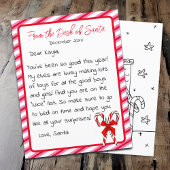 From the Desk of Santa
December 2023
Dear Kayla,
You've been so good this year!
My elves are loving making lots
of toys for all the good boys
and girls! Find you are on the
"Nice" list. So make sure to go
to bed on time and hope you like
all your surprises!
Love, Santa